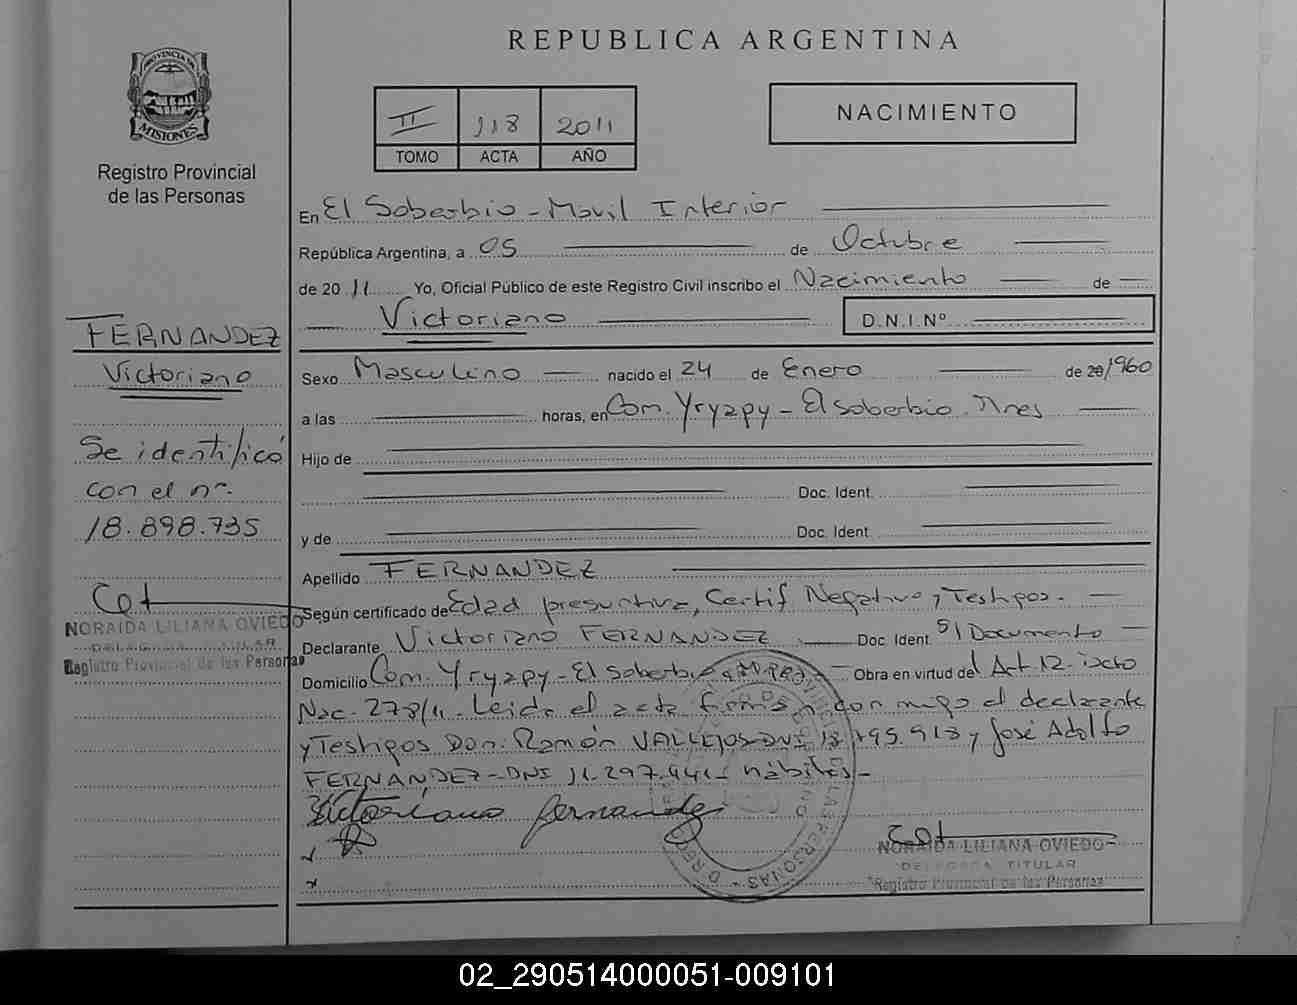 REPUBLICA ARGENTINA
PROVINCIA DE
MISIONES
Registro Provincial
de las Personas
II 118 2011
TOMO ACTA AÑO
NACIMIENTO
En El Soberbio - Movil Interior
República Argentina, a 05 de Octubre
de 2011 Yo, Oficial Público de este Registro Civil inscribo el Nacimiento de
Victoriano D.N.I.Nº
Sexo Masculino nacido el 24 de Enero de 20 1960
a las horas, en Com. Yryapy - El Soberbio. Mnes
Hijo de
Doc. Ident.
y de Doc. Ident.
Apellido FERNANDEZ
Según certificado de Edad presuntiva, Certif Negativo y Testigos.
Declarante Victoriano FERNANDEZ Doc. Ident. S/ Documento
Domicilio Com. Yryapy - El Soberbio Obra en virtud de Art. 12
Nac. 278/11. Leida el acta firman con migo el declarante
y Testigos Don. Ramón VALLEJOS DNI y José Adolfo
FERNANDEZ - DNI 11.297.441 - hábiles -
Victoriano fernandez
NORAIDA LILIANA OVIEDO
DELEGADA TITULAR
Registro Provincial de las Personas
FERNANDEZ
Victoriano
Se identificó
con el nº.
18.898.735
NORAIDA LILIANA OVIEDO
DELEGADA TITULAR
Registro Provincial de las Personas
02_290514000051-009101